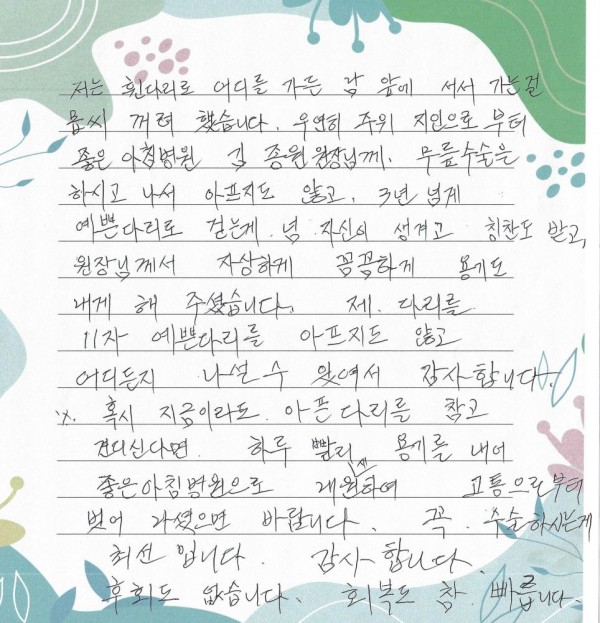 저는 휜다리로 어디를 가든 남 앞에 서서 가는걸
몹씨 꺼려 했습니다. 우연히 주위 지인으로 부터
좋은 아침병원 김 종원 원장님께. 무릎수술을
하시고 나서 아프지도 않고, 3년 넘게
예쁜다리로 걷는게. 넘 자신이 생겨고 칭찬도 받고,
원장님께서 자상하게 꼼꼼하게 용기도
내게 해 주셨습니다. 제. 다리를
11자 예쁜다리를 아프지도 않고
어디든지 나설 수 있여서 감사합니다.
※. 혹시 지금이라도. 아픈다리를 참고
견디신다면. 하루 빨리 용기를 내어
좋은아침병원으로 내원하여 고통으로부터
벗어 나셨으면 바랍니다. 꼭. 수술하시는게
최선 입니다. 감사 합니다.
후회도 없습니다. 회복도 참. 빠릅니다.